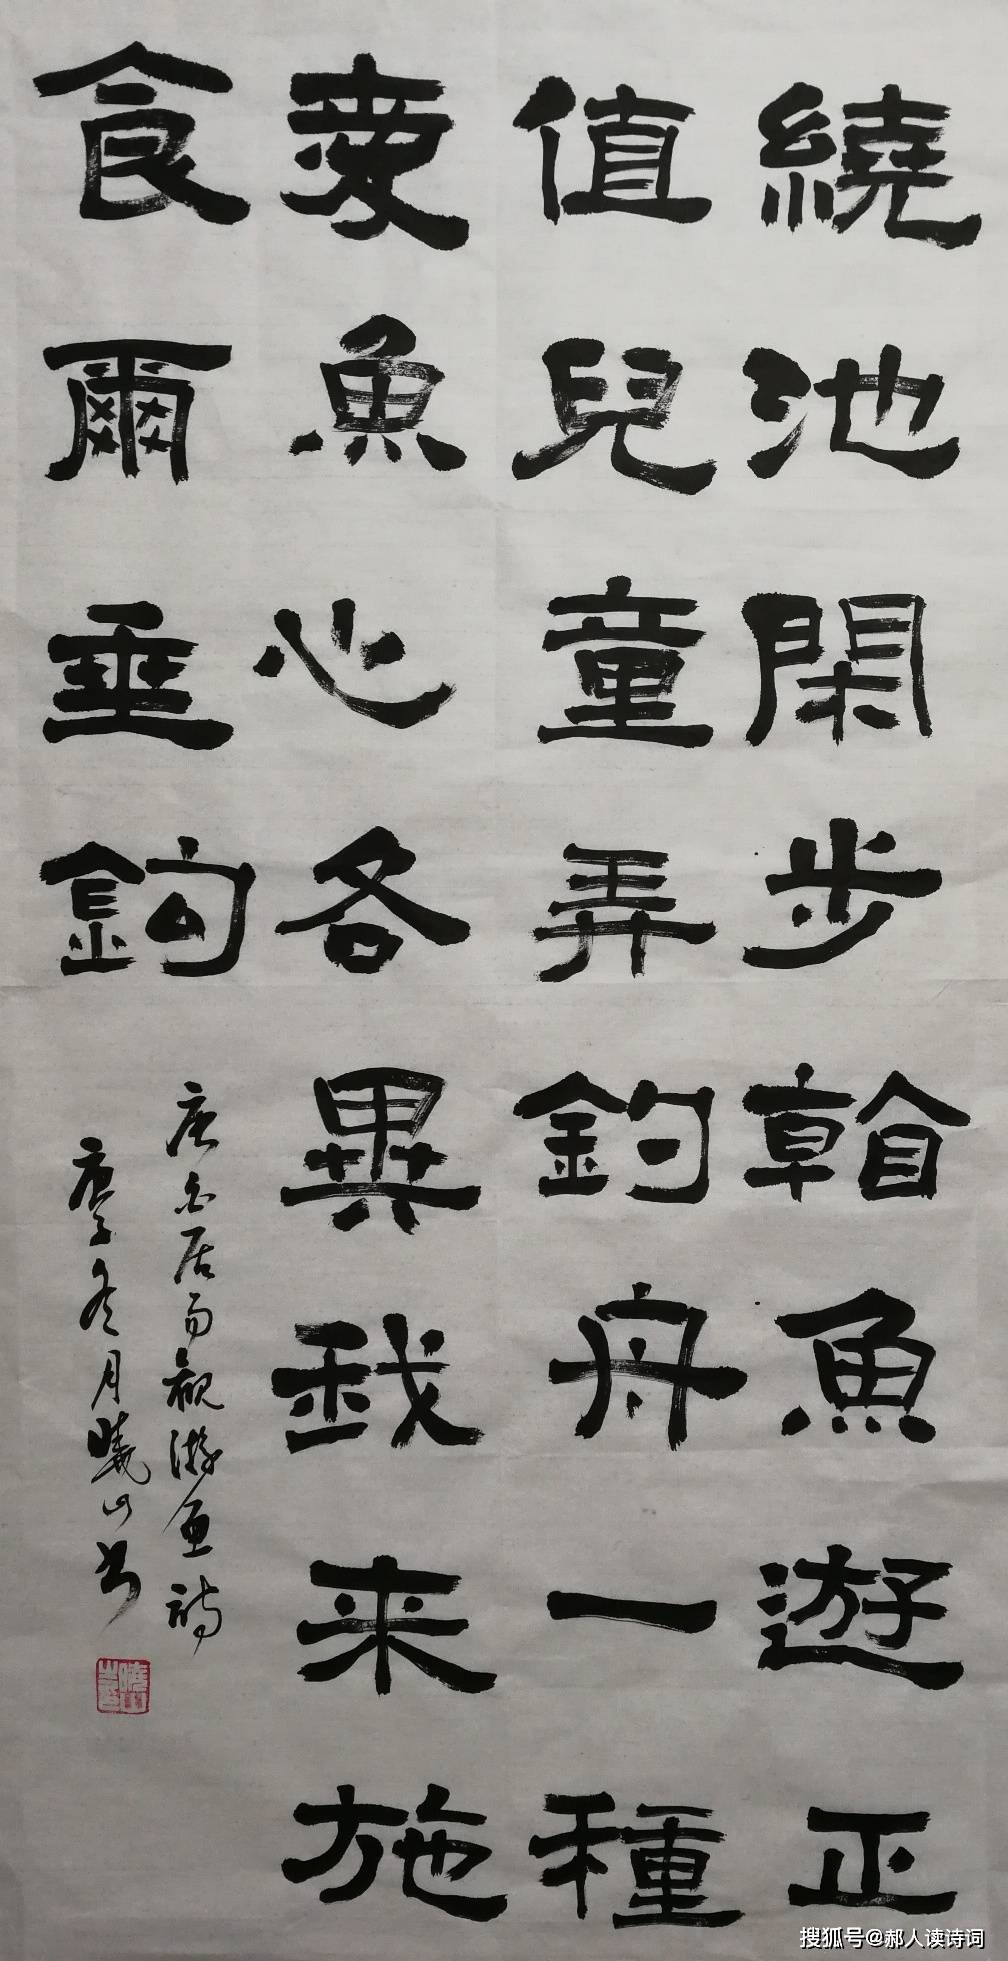 繞池閑步看魚遊正
值兒童弄釣舟一種
愛魚心各異我来施
食爾垂鈎
唐白居易觀游魚詩
庚子冬月曉山書
搜狐号@郝人读诗词